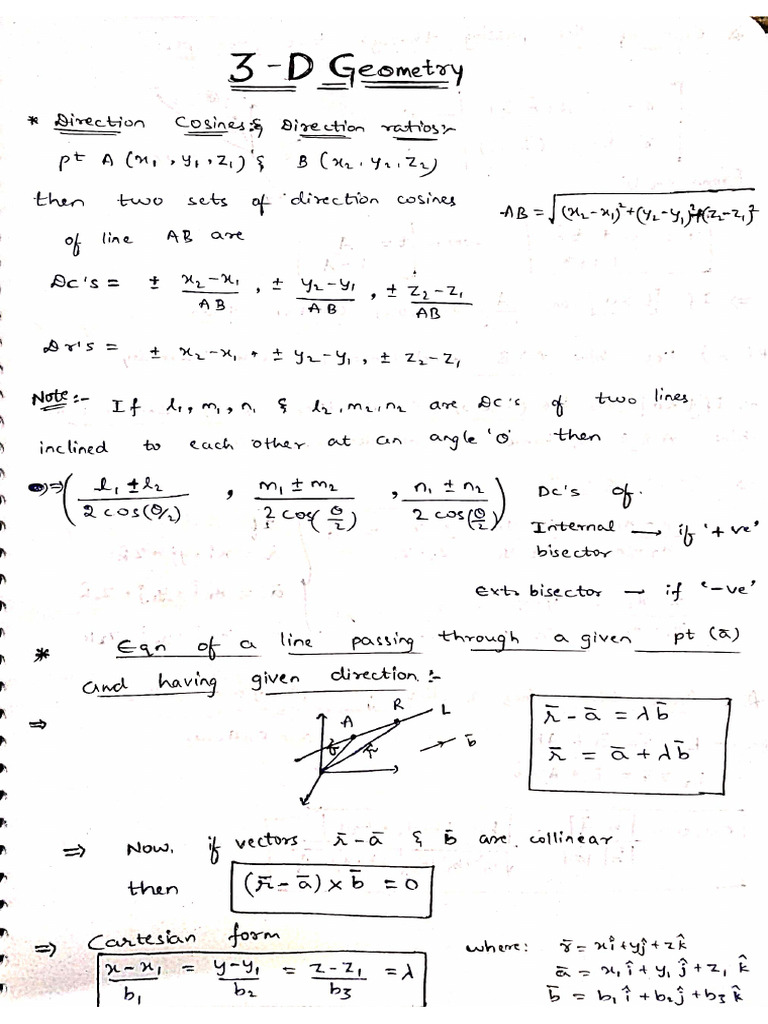 3-D Geometry
* Direction Cosines & Direction ratios:-
pt A (x₁, y₁, z₁) & B (x₂, y₂, z₂)
then two sets of direction cosines
of line AB are
AB = √((x₂-x₁)²+(y₂-y₁)²+(z₂-z₁)²)
Dc's = ± (x₂-x₁)/AB, ± (y₂-y₁)/AB, ± (z₂-z₁)/AB
Dr's = ± x₂-x₁, ± y₂-y₁, ± z₂-z₁
Note:- If l₁, m₁, n₁ & l₂, m₂, n₂ are Dc's of two lines
inclined to each other at an angle 'θ' then
⇒ ((l₁ ± l₂)/(2 cos(θ/2)), (m₁ ± m₂)/(2 cos(θ/2)), (n₁ ± n₂)/(2 cos(θ/2))) Dc's of
Internal bisector → if '+ve'
Ext. bisector → if '-ve'
* Eqn of a line passing through a given pt (a̅)
and having given direction:-
⇒
A R L b̅
r̅ - a̅ = λb̅
r̅ = a̅ + λb̅
⇒ Now, if vectors r̅ - a̅ & b̅ are collinear
then (r̅ - a̅) × b̅ = 0
⇒ Cartesian form
(x-x₁)/b₁ = (y-y₁)/b₂ = (z-z₁)/b₃ = λ
where: r̅ = xî + yĵ + zk̂
a̅ = x₁î + y₁ĵ + z₁k̂
b̅ = b₁î + b₂ĵ + b₃k̂